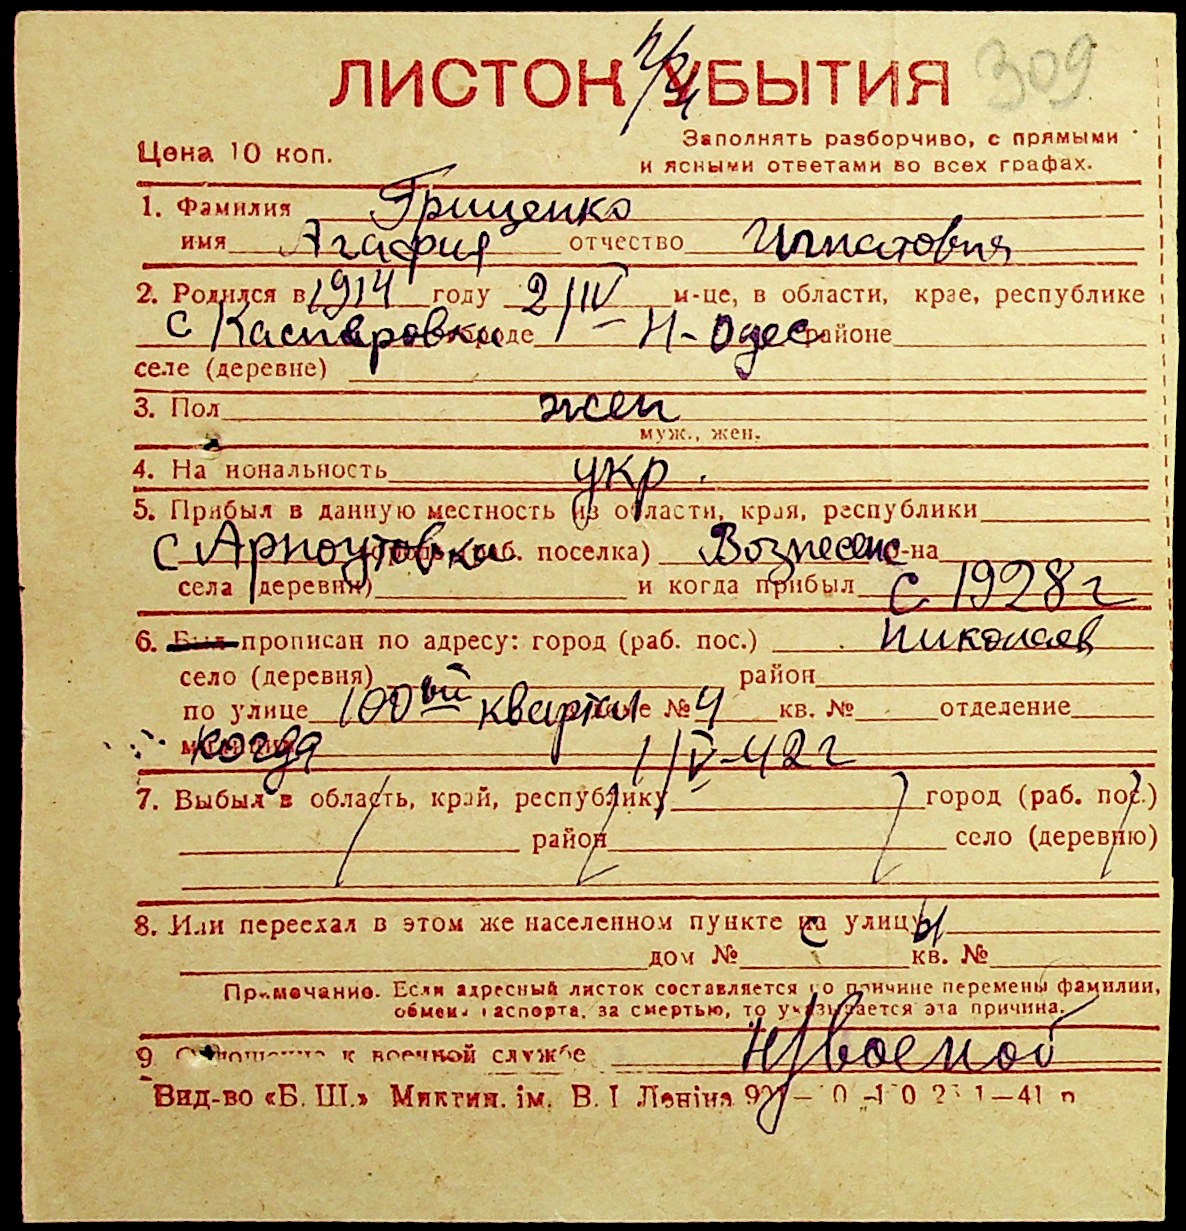 ЛИСТОК УБЫТИЯ 309
Цена 10 коп.
Заполнять разборчиво, с прямыми
и ясными ответами во всех графах.
1. Фамилия Грищенко
имя Агафия отчество Игнатовня
2. Родился в 1914 году 2/IV м-це, в области, крае, республике
с Каспаровки городе Н-Одес. районе
селе (деревне)
3. Пол жен
муж., жен.
4. Национальность укр.
5. Прибыл в данную местность из области, края, республики
с Арноутовки города (раб. поселка) Вознесенс р-на
села (деревни) и когда прибыл с 1928 г
6. Был прописан по адресу: город (раб. пос.) Николаев
село (деревня) район
по улице 100ый квартал доме № 4 кв. № отделение
милиции когда 1/V-42 г
7. Выбыл в область, край, республику город (раб. пос.)
район село (деревню)
8. Или переехал в этом же населенном пункте на улицу
дом № кв. №
Примечание. Если адресный листок составляется по причине перемены фамилии,
обмена паспорта, за смертью, то указывается эта причина.
9. Отношение к военной службе н/военоб
Вид-во «Б. Ш.» Миктип. ім. В. І Леніна